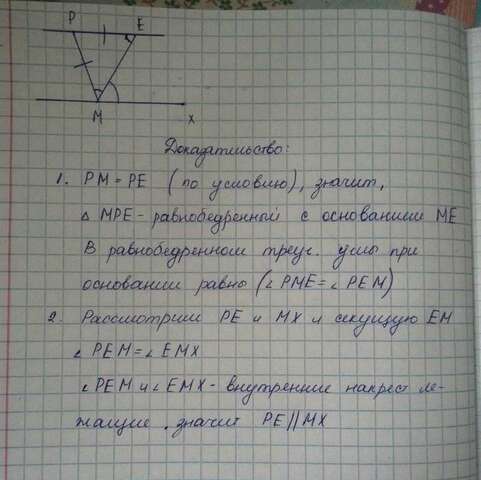 P E
M x
Доказательство:
1. PM = PE (по условию), значит,
△ MPE - равнобедренный с основанием ME
В равнобедренном треуг. углы при
основании равны (∠ PME = ∠ PEM)
2. Рассмотрим PE и MX и секущую EM
∠ PEM = ∠ EMX
∠ PEM и ∠ EMX - внутренние накрест ле-
жащие, значит PE || MX